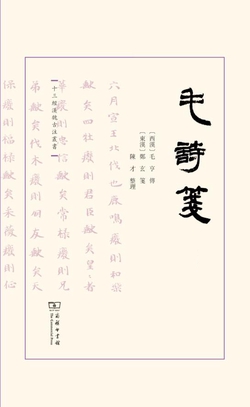 毛詩箋
［西漢］毛亨 傳
［東漢］鄭玄 箋
陳才 整理
六月宣王北伐也鹿鳴廢則和樂
缺矣四牡廢則君臣缺矣皇〻者
華廢則忠信缺矣常棣廢則兄
弟缺矣伐木廢則朋友缺矣天
保廢則福祿缺矣采薇廢則征
十三經漢魏古注叢書
商務印書館
The Commercial Press